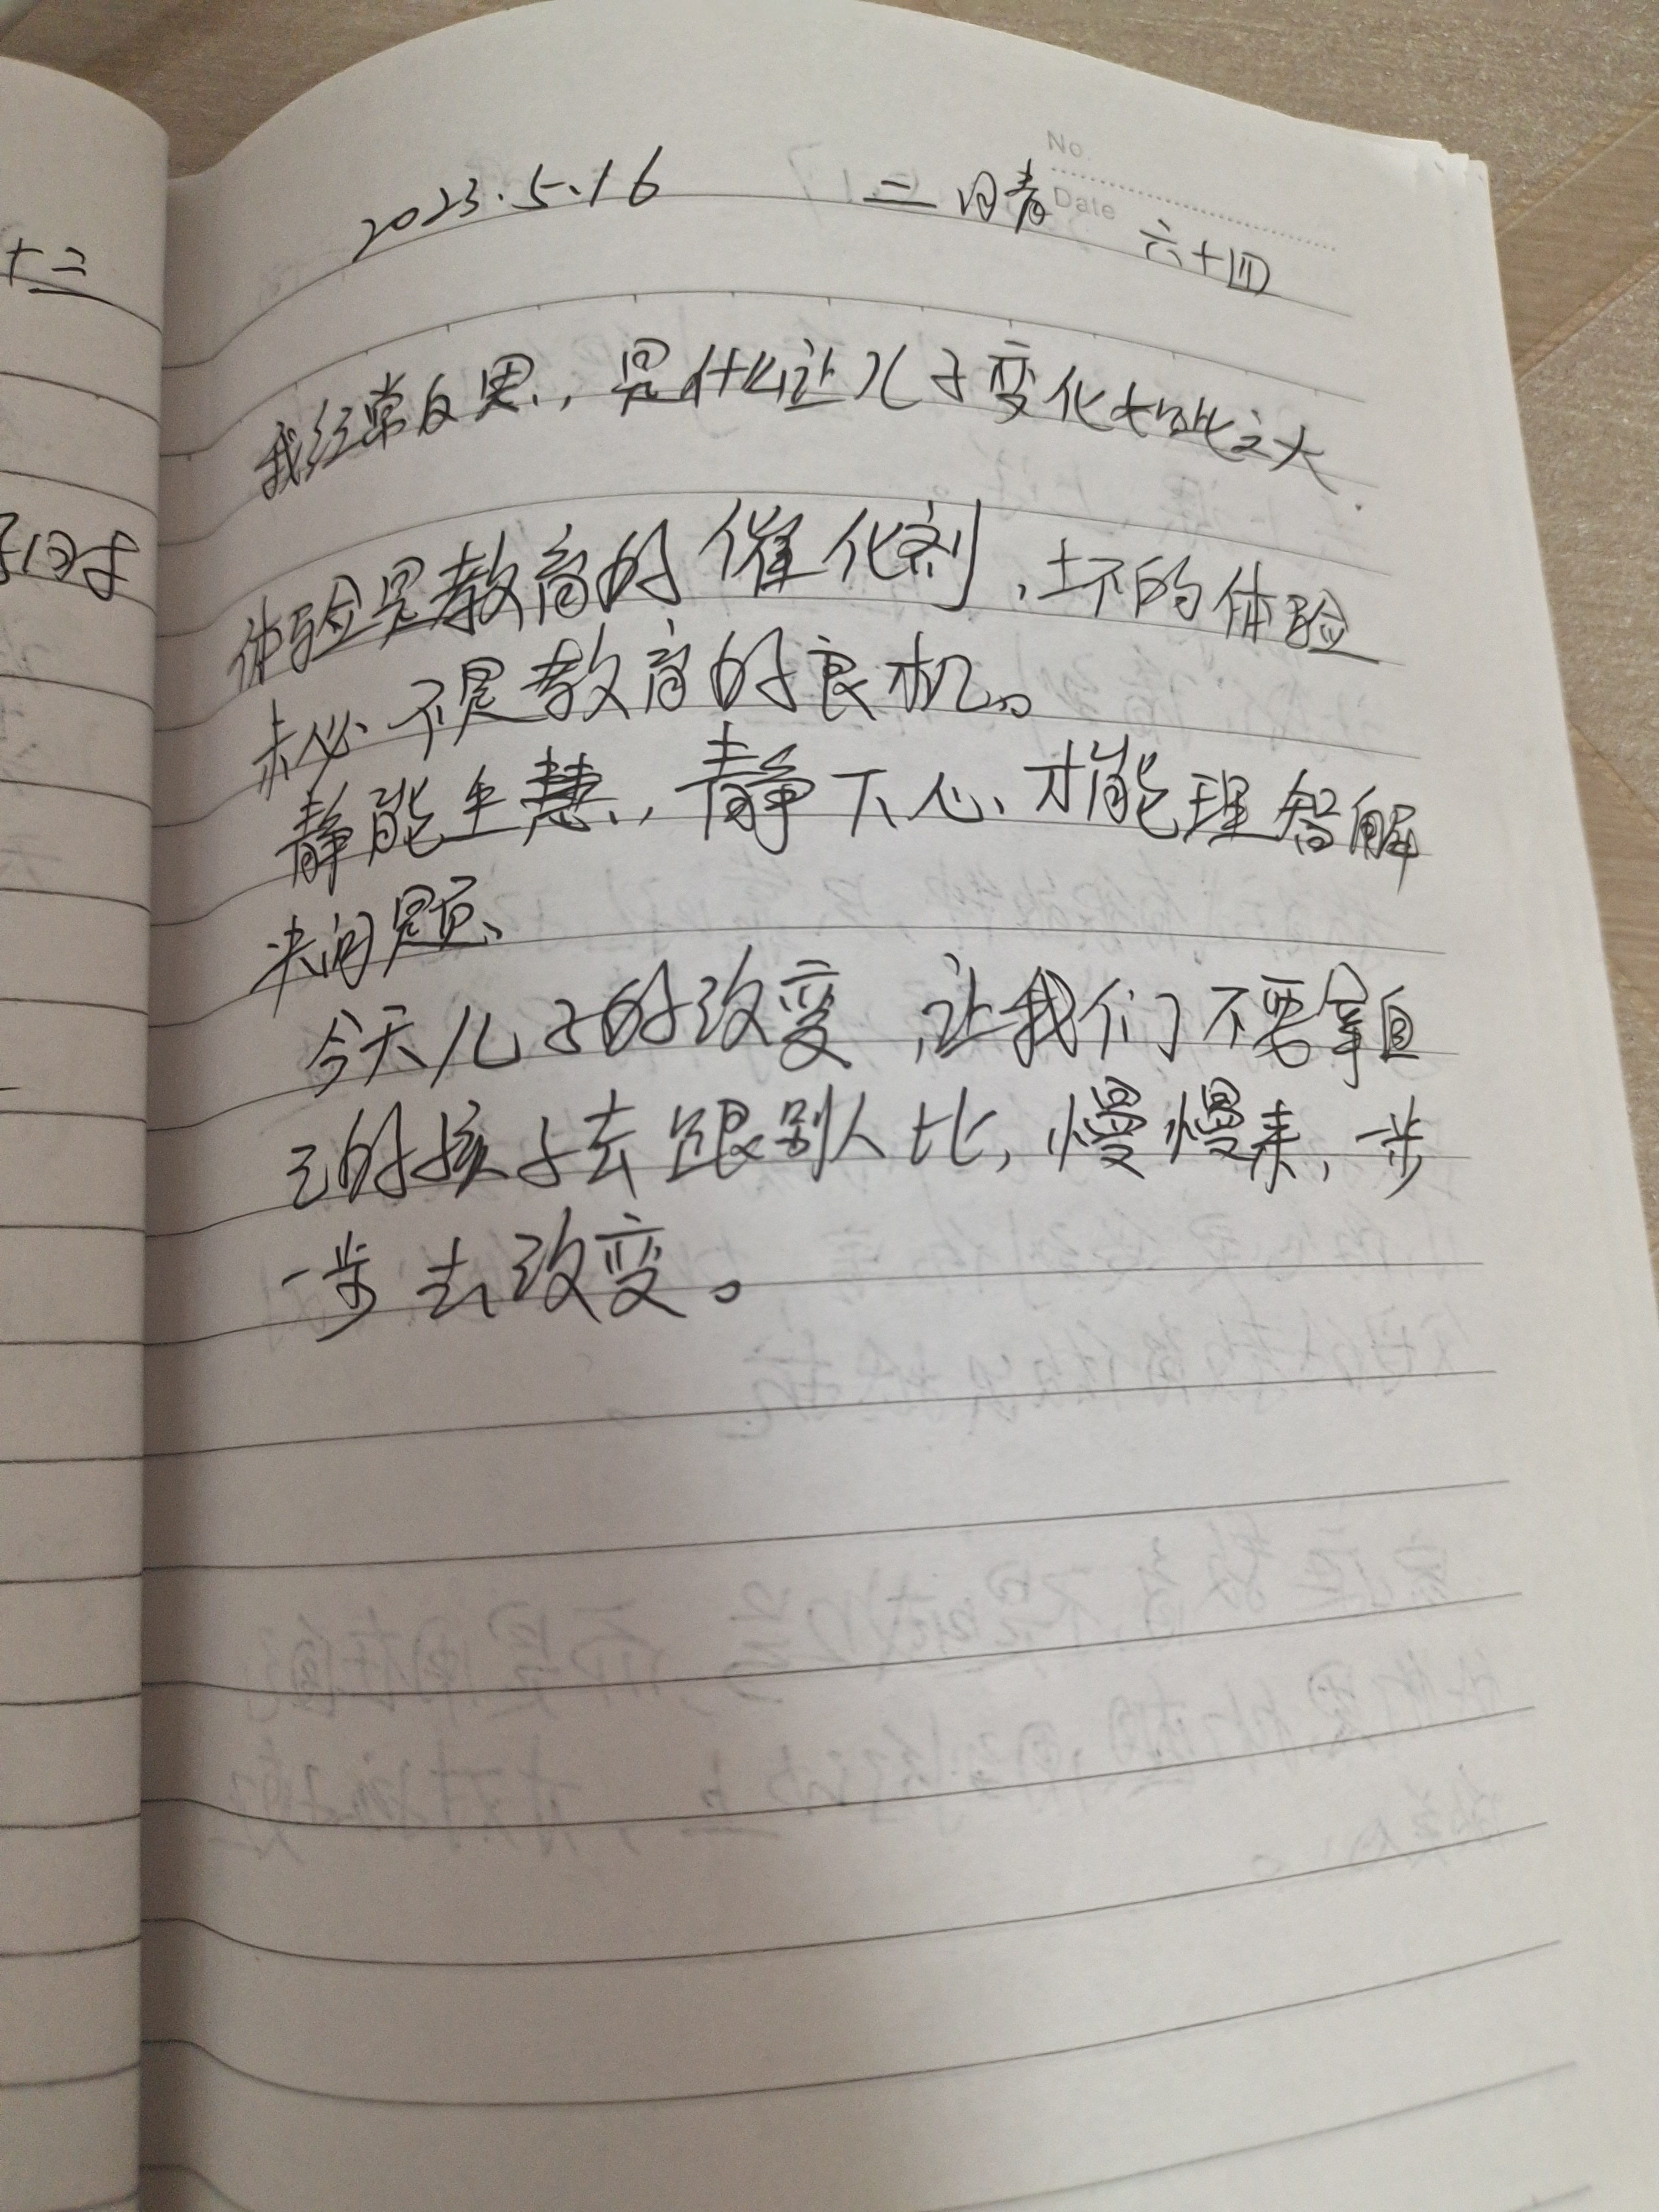 No.
Date
2023.5.16 二 日春 六十四
我经常反思,是什么让儿子变化如此之大.
体验是教育的催化剂,坏的体验
未必不是教育的良机。
静能生慧,静下心、才能理智解
决问题、
今天儿子的改变,让我们不要拿自
己的孩子去跟别人比,慢慢来,一步
一步去改变。
十二